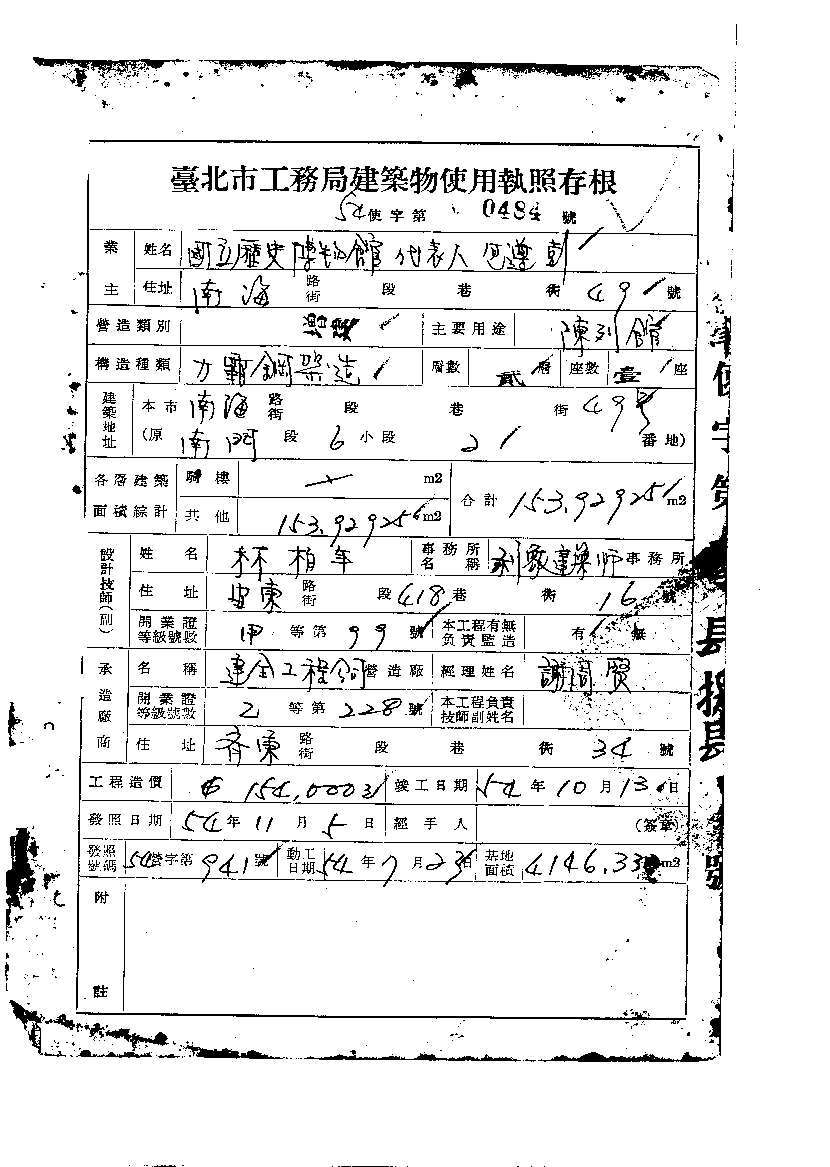 臺北市工務局建築物使用執照存根
54使字第 0484 號
業主 姓名 國立歷史博物館 代表人 包遵彭
住址 南海 路街 段 巷 街 49 號
營造類別 增建 主要用途 陳列館
構造種類 力霸鋼架造 層數 貳層 座數 壹座
建築地址 本市 南海 路街 段 巷 街 49號
(原 南門 段 6 小段 21 番地)
各層建築面積綜計 騎樓 m2 合計 153.929256 m2
其他 153.929256 m2
設計技師(副) 姓名 林柏年 事務所名稱 利眾建築師事務所
住址 安東 路街 段 418 巷 街 16 號
開業證等級號數 甲 等第 99 號 本工程有無負責監造 有 無
承造廠商 名稱 建全工程公司 營造廠 經理姓名 謝
開業證等級號數 乙 等第 228 號 本工程負責技師副姓名
住址 齊東 路街 段 巷 街 34 號
工程造價 $ 154,000 竣工日期 54年10月13日
發照日期 54年11月5日 經手人 (簽章)
發照號碼 54營字第941號 動工日期 54年7月23日 基地面積 4146.33 m2
附註